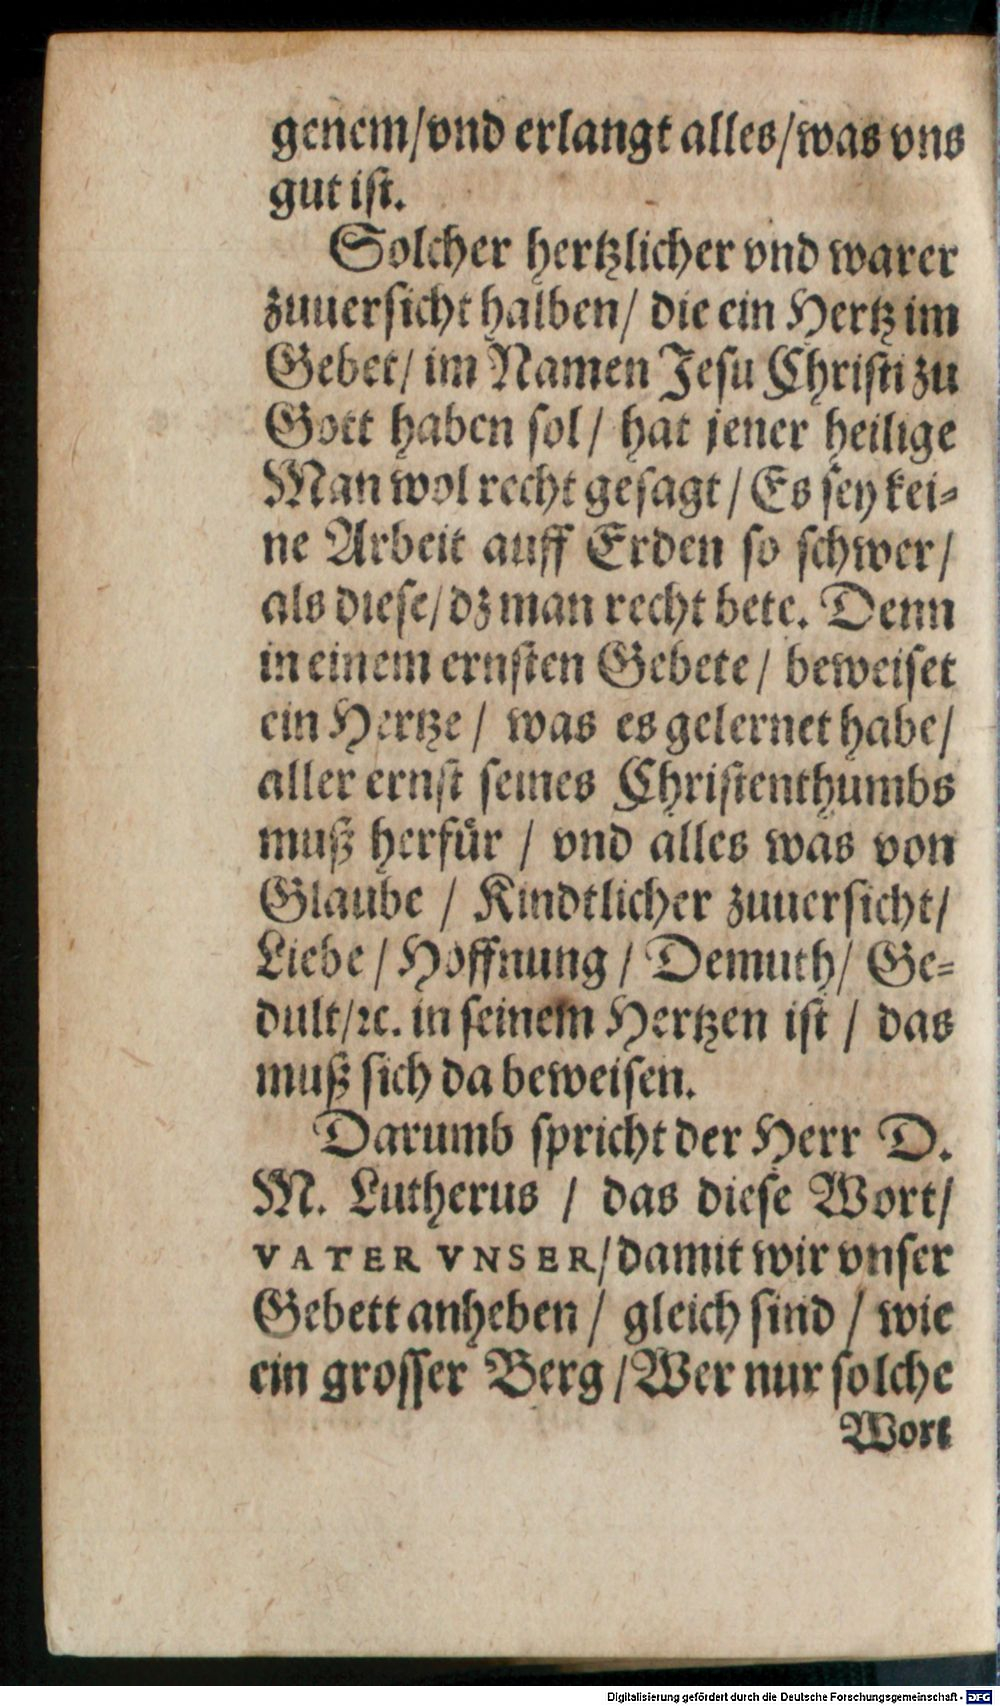 genem/vnd erlangt alles/was vns
gut ist.
Solcher hertzlicher vnd warer
zuuersicht halben/ die ein Hertz im
Gebet/ im Namen Jesu Christi zu
Gott haben sol/ hat jener heilige
Man wol recht gesagt/ Es sey kei-
ne Arbeit auff Erden so schwer/
als diese/dz man recht bete. Denn
in einem ernsten Gebete/ beweiset
ein Hertze/ was es gelernet habe/
aller ernst seines Christenthumbs
muß herfür / vnd alles was von
Glaube / Kindtlicher zuuersicht/
Liebe/ Hoffnung/ Demuth/ Ge-
dult/ꝛc. in seinem Hertzen ist / das
muß sich da beweisen.
Darumb spricht der Herr D.
M. Lutherus / das diese Wort/
VATER VNSER/damit wir vnser
Gebett anheben/ gleich sind / wie
ein grosser Berg/Wer nur solche
Wort
Digitalisierung gefördert durch die Deutsche Forschungsgemeinschaft - DFG